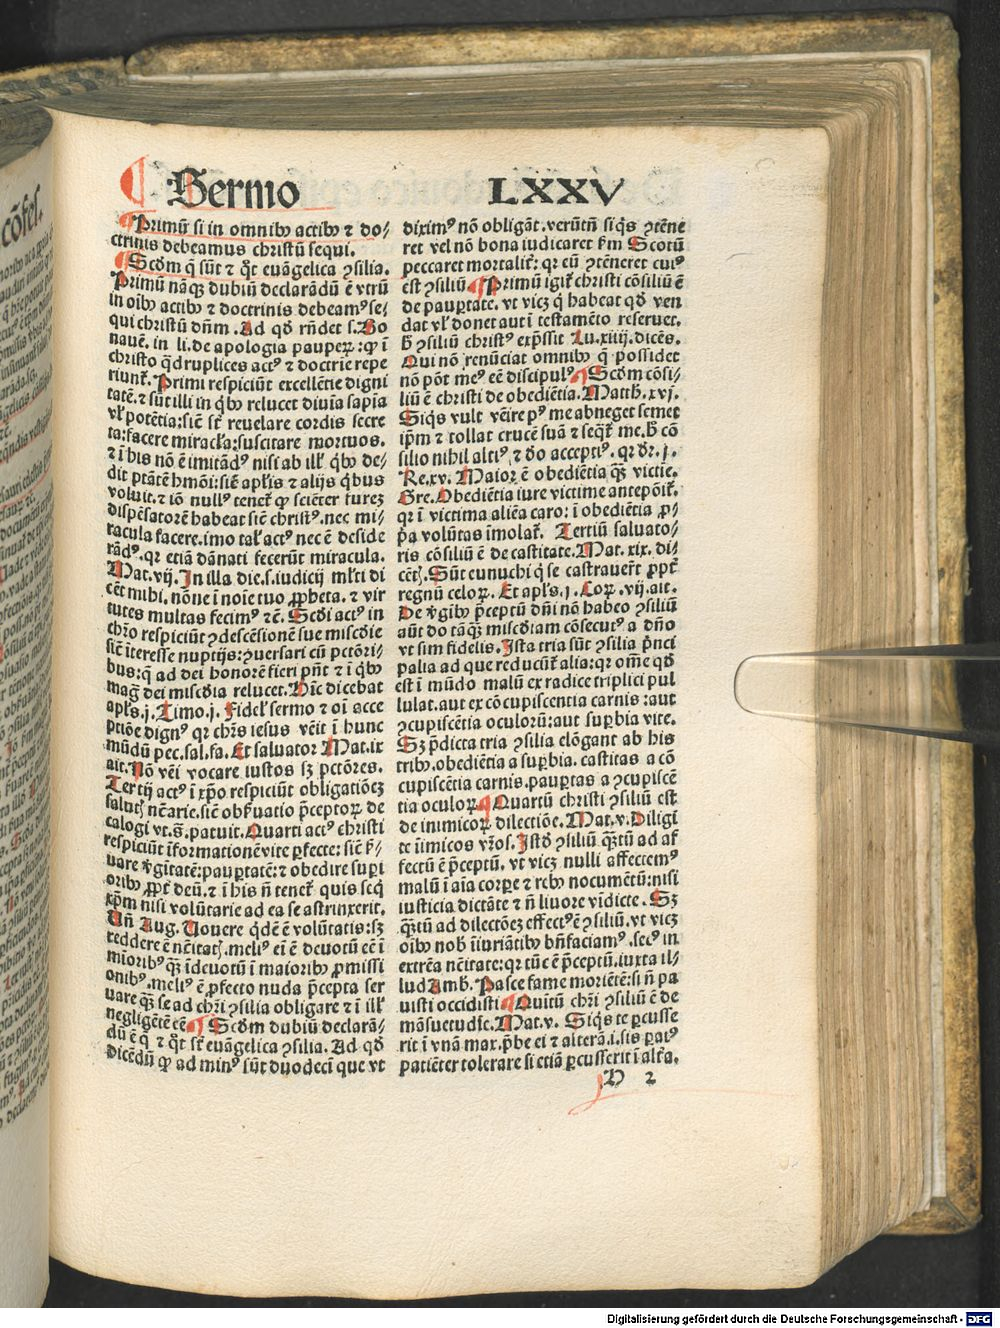 ¶ Sermo LXXV
¶ Primū si in omnibꝰ actibꝰ ⁊ do⸗
ctrinis debeamus christū sequi.
¶ Scḋm q̄ sūt ⁊ q̊t euāgelica ꝯsilia.
Primū nāqꝫ dubiū declarādū ē vtrū
in oībꝰ actibꝰ ⁊ doctrinis debeamꝰ se⸗
qui christū dn̄m. Ad qḋ rn̄det s. Bo
nauē. in li. de apologia pauperꝝ: ꝙ ī
christo q̄druplices actꝰ ⁊ doctrīe repe
riunt̄. Primi respiciūt excellētie digni
tatē. ⁊ sūt illi in qͥbꝰ relucet diuīa sapīa
vl̓ potētia: sic̄ st̄ reuelare cordis secre
ta: facere miracl̓a: suscitare mortuos.
⁊ ī his nō ē imitādꝰ nisi ab ill̓ qͥbꝰ de⸗
dit ptātē hm̄oi: sic̄ apl̓is ⁊ alijs qͥbus
voluit. ⁊ iō nullꝰ tenet̄ ꝙ sciēter furez
dispēsatorē habeat sic̄ christꝰ. nec mi⸗
racula facere. imo tal̓ actꝰ nec ē deside
rādꝰ. qꝛ etiā dānati fecerūt miracula.
Mat. vij. In illa die. s. iudicij ml̓ti di
cēt mihi. nōne ī noīe tuo ꝓpheta. ⁊ vir
tutes multas fecimꝰ ⁊c̄. Scḋi actꝰ in
chr̄o respiciūt ꝯdescēsionē sue misc̄die
sic̄ īteresse nuptijs: ꝯuersari cū pctōri⸗
bus: q̄ ad dei honorē fieri pn̄t ⁊ ī qͥbꝰ
maḡ dei misc̄dia relucet. Hīc dicebat
apl̓s. j. Timo. j. Fidel̓ sermo ⁊ oī acce
ptiōe dignꝰ qꝛ chr̄s iesus vēit ī hunc
mūdū pec. sal. fa. Et saluator Mat. ix
ait. Nō vēi vocare iustos sꝫ pctōres.
Tertij actꝰ ī xp̄o respiciūt obligatiōeꝫ
saluti nc̄arie. sic̄ obẜuatio p̄ceptoꝝ de
calogi vt. s̄. patuit. Quarti actꝰ christi
respiciūt īformationē vite ꝑfecte: sic̄ ẜ⸗
uare v̓gītatē: pauꝑtatē: ⁊ obedire supi
oribꝰ ꝓpt̄ deū. ⁊ ī his n̄ tenet̄ quis seq̄
xp̄m nisi volūtarie ad ea se astrinxerit.
Vn̄ Aug. Vouere qͥdē ē volūtatis: sꝫ
reddere ē nc̄itatꝭ. meliꝰ ei ē deuotū eē ī
mīoribꝰ qꝫ īdeuotū ī maioribꝰ ꝓmissi
onibꝰ. meliꝰ ē ꝓfecto nuda p̄cepta ser
uare qꝫ se ad chr̄i ꝯsilia obligare ⁊ ī ill̓
negligētē eē ¶ Scḋm dubiū declarā⸗
dū ē q̄ ⁊ q̊t st̄ euāgelica ꝯsilia. Ad qḋ
dicēdū ꝙ ad minꝰ sūt duodecī que vt
diximꝰ nō obligāt. verūtn̄ si qͥs ꝯtēne
ret vel nō bona iudicaret ẜm Scotū
peccaret mortalit̄: qꝛ eū ꝯtēneret cuiꝰ
est ꝯsiliū ¶ Primū igit̄ christi cōsiliū ē
de pauꝑtate. vt vicꝫ q̄ habeat qḋ ven
dat vl̓ donet aut ī testamēto reseruet.
h̄ ꝯsiliū christꝰ exp̄ssit Lu. xiiij. dicēs.
Qui nō renūciat omnibꝰ q̄ possidet
nō pōt meꝰ eē discipulꝰ ¶ Scḋm cōsi⸗
liū ē christi de obediētia. Matth. xvj.
Si qͥs vult vēire pꝰ me abneget semet
ip̄m ⁊ tollat crucē suā ⁊ seqͣt̄ me. h̄ cō
silio nihil altiꝰ ⁊ deo acceptiꝰ. qꝛ dr̄. j.
Re. xv. Maior ē obediētia qꝫ victie.
Gre. Obediētia iure victime anteponit̄.
qꝛ ī victima aliēa caro: ī obediētia ꝓ⸗
p̄a volūtas īmolat̄. Tertiū saluato⸗
ris cōsiliū ē de castitate. Mat. xix. di⸗
cētꝭ. Sūt eunuchi q̄ se castrauerūt ꝓpt̄
regnū celoꝝ. Et apl̓s. j. Coꝝ. vij. ait.
De v̓gībꝰ p̄ceptū dn̄i nō habeo ꝯsiliū
aūt do tāqꝫ misc̄diam cōsecutꝰ a dn̄o
vt sim fidelis. Ista tria sūt ꝯsilia p̄nci
palia ad que reducūt̄ alia: qꝛ om̄e qḋ
est ī mūdo malū ex radice triplici pul
lulat. aut ex cōcupiscentia carnis: aut
ꝯcupiscētia oculorū: aut suꝑbia vite.
Sꝫ p̄dicta tria ꝯsilia elōgant ab his
tribꝰ. obediētia a suꝑbia. castitas a cō
cupiscētia carnis. pauꝑtas a ꝯcupiscē
tia oculoꝝ ¶ Quartū christi ꝯsiliū est
de inimicoꝝ dilectiōe. Mat. v. Diligi
te iīmicos vr̄os. Istḋ ꝯsiliū qͣꝫtū ad af
fectū ē p̄ceptū. vt vicꝫ nulli affectemꝰ
malū ī aīa corꝑe ⁊ rebꝰ nocumētū: nisi
iusticia dictāte ⁊ n̄ liuore vīdicte. Sꝫ
qͣꝫtū ad dilectōeꝫ effectꝰ ē ꝯsiliū. vt vicꝫ
oībꝰ nob̄ īiuriātibꝰ bn̄faciamꝰ. secꝰ in
extrēa nc̄itate: qꝛ tūc ē p̄ceptū. iuxta il⸗
lud Amb. Pasce fame moriētē: si n̄ pa
uisti occidisti ¶ Quītū chr̄i ꝯsiliū ē de
māsuetudīe. Mat. v. Si qͥs te ꝑcusse
rit ī vnā max. p̄be ei ⁊ alterā. i. sis patꝰ
patiēter tolerare si etiā ꝑcusserit ī alt̄a.
D 2
Digitalisierung gefördert durch die Deutsche Forschungsgemeinschaft - DFG